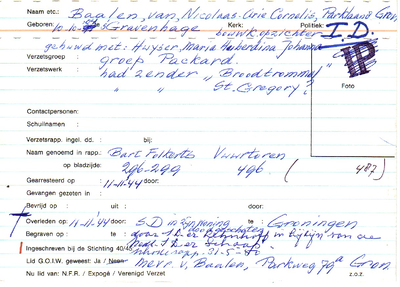 Naam etc.: Baalen, van, Nicolaas-Arie Cornelis, Parklaand Gron.
Geboren: 10-10- 's Gravenhage Kerk: bouwk. opzichter Politiek: I.D.
gehuwd met: Huyser, Maria Huiberdina Johanna
Verzetsgroep: groep Packard.
Verzetswerk: had zender "Broodtrommel"
" " St. Gregory?
Foto
Contactpersonen:
Schuilnaam:
Verzetsrapp. ingel. dd. : bij:
Naam genoemd in rapp.: Bart Folkerts Vuurtoren
op bladzijde: 296-299 496 (487)
Gearresteerd op : 11-11-44 door:
Gevangen gezeten in :
Bevrijd op : uit : door:
Overleden op : 11-11-44 door: S.D. in zijn woning te : Groningen
Begraven op : te : door
Ingeschreven bij de Stichting 40/45
Lid G.O.I.W. geweest: Ja / Neen Mevr. v. Baalen, Parkweg 79a Gron.
Nu lid van: N.F.R. / Expogé / Verenigd Verzet z.o.z.